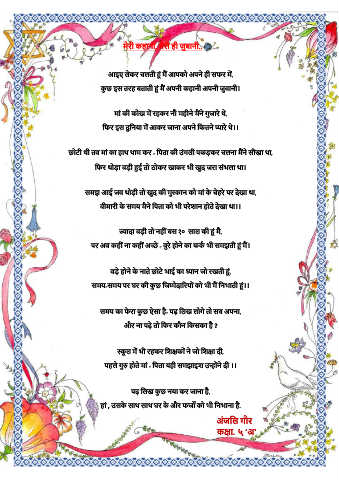 मेरी कहानी मेरी ही जुबानी..
आइए लेकर चलती हूं मैं आपको अपने ही सफर में,
कुछ इस तरह बताती हूं मैं अपनी कहानी अपनी जुबानी।
मां की कोख में रहकर नौ महीने मैंने गुजारे थे,
फिर इस दुनिया में आकर जाना अपने कितने प्यारे थे।।
छोटी थी तब मां का हाथ थाम कर - पिता की उंगली पकड़कर चलना मैंने सीखा था,
फिर थोड़ा बड़ी हुई तो ठोकर खाकर भी खुद जरा संभला था।
समझ आई जब थोड़ी तो खुद की मुस्कान को मां के चेहरे पर देखा था,
बीमारी के समय मैंने पिता को भी परेशान होते देखा था।।
ज्यादा बड़ी तो नहीं बस १० साल की हूं मैं,
पर अब कहीं ना कहीं अच्छे - बुरे होने का फर्क भी समझती हूं मैं।
बड़े होने के नाते छोटे भाई का ध्यान जो रखती हूं,
समय-समय पर घर की कुछ जिम्मेदारियों को भी मैं निभाती हूं।।
समय का फेरा कुछ ऐसा है- पढ़ लिख लोगे तो सब अपना,
और ना पढ़े तो फिर कौन किसका है ?
स्कूल में भी रहकर शिक्षकों ने जो शिक्षा दी,
पहले गुरु होते मां - पिता यही समझाइश उन्होंने दी ।।
पढ़ लिख कुछ नया कर जाना है,
हां , उसके साथ साथ घर के और फर्जों को भी निभाना है.
अंजलि गौर
कक्षा. ५ 'अ'